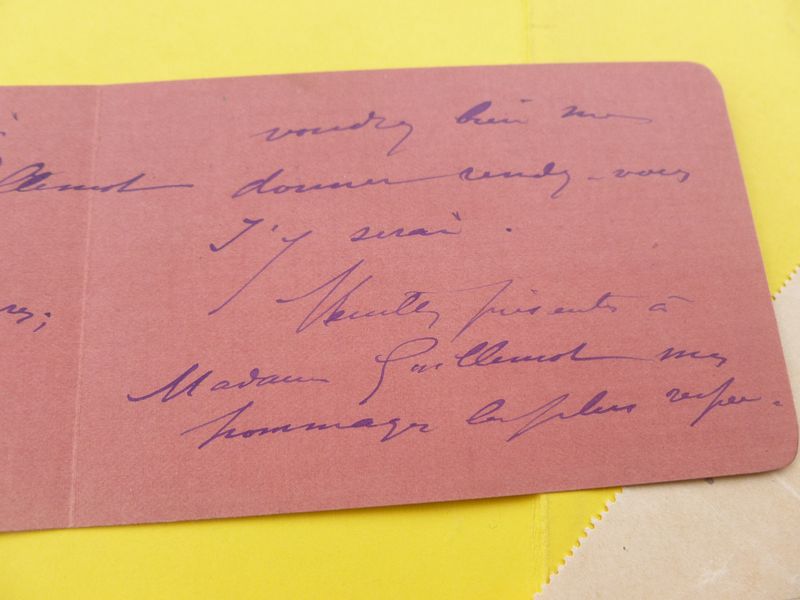 voudrez bien me
donner rendez-vous
J'y serai.
Veuillez présenter à
Madame Guillemot mes
hommages les plus respec-
llemot